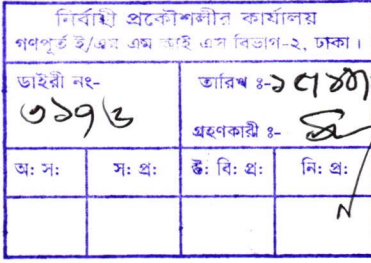 নির্বাহী প্রকৌশলীর কার্যালয়
গণপূর্ত ই/এম এম আই এস বিভাগ-২, ঢাকা।
ডাইরী নং-
তারিখ ঃ-
৩১৭৬
গ্রহণকারী ঃ-
অ: স:
স: প্র:
উ: বি: প্র:
নি: প্র: